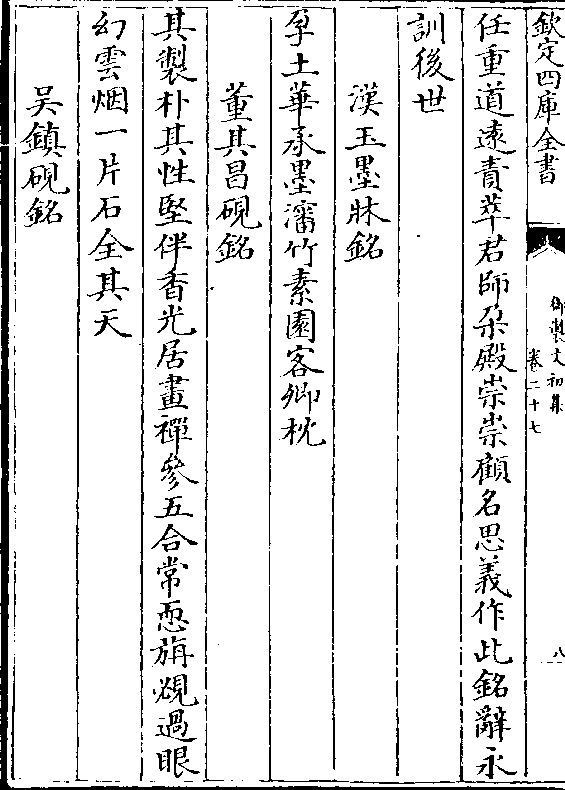 欽定四庫全書
御製文初集
卷二十七
八
任重道遠責萃君師朶殿崇崇顧名思義作此銘辭永
訓後世
漢玉墨牀銘
孕土華承墨瀋竹素園客卿枕
董其昌硯銘
其製朴其性堅伴香光居畫禪參五合常恧旃覕過眼
幻雲烟一片石全其天
吳鎮硯銘